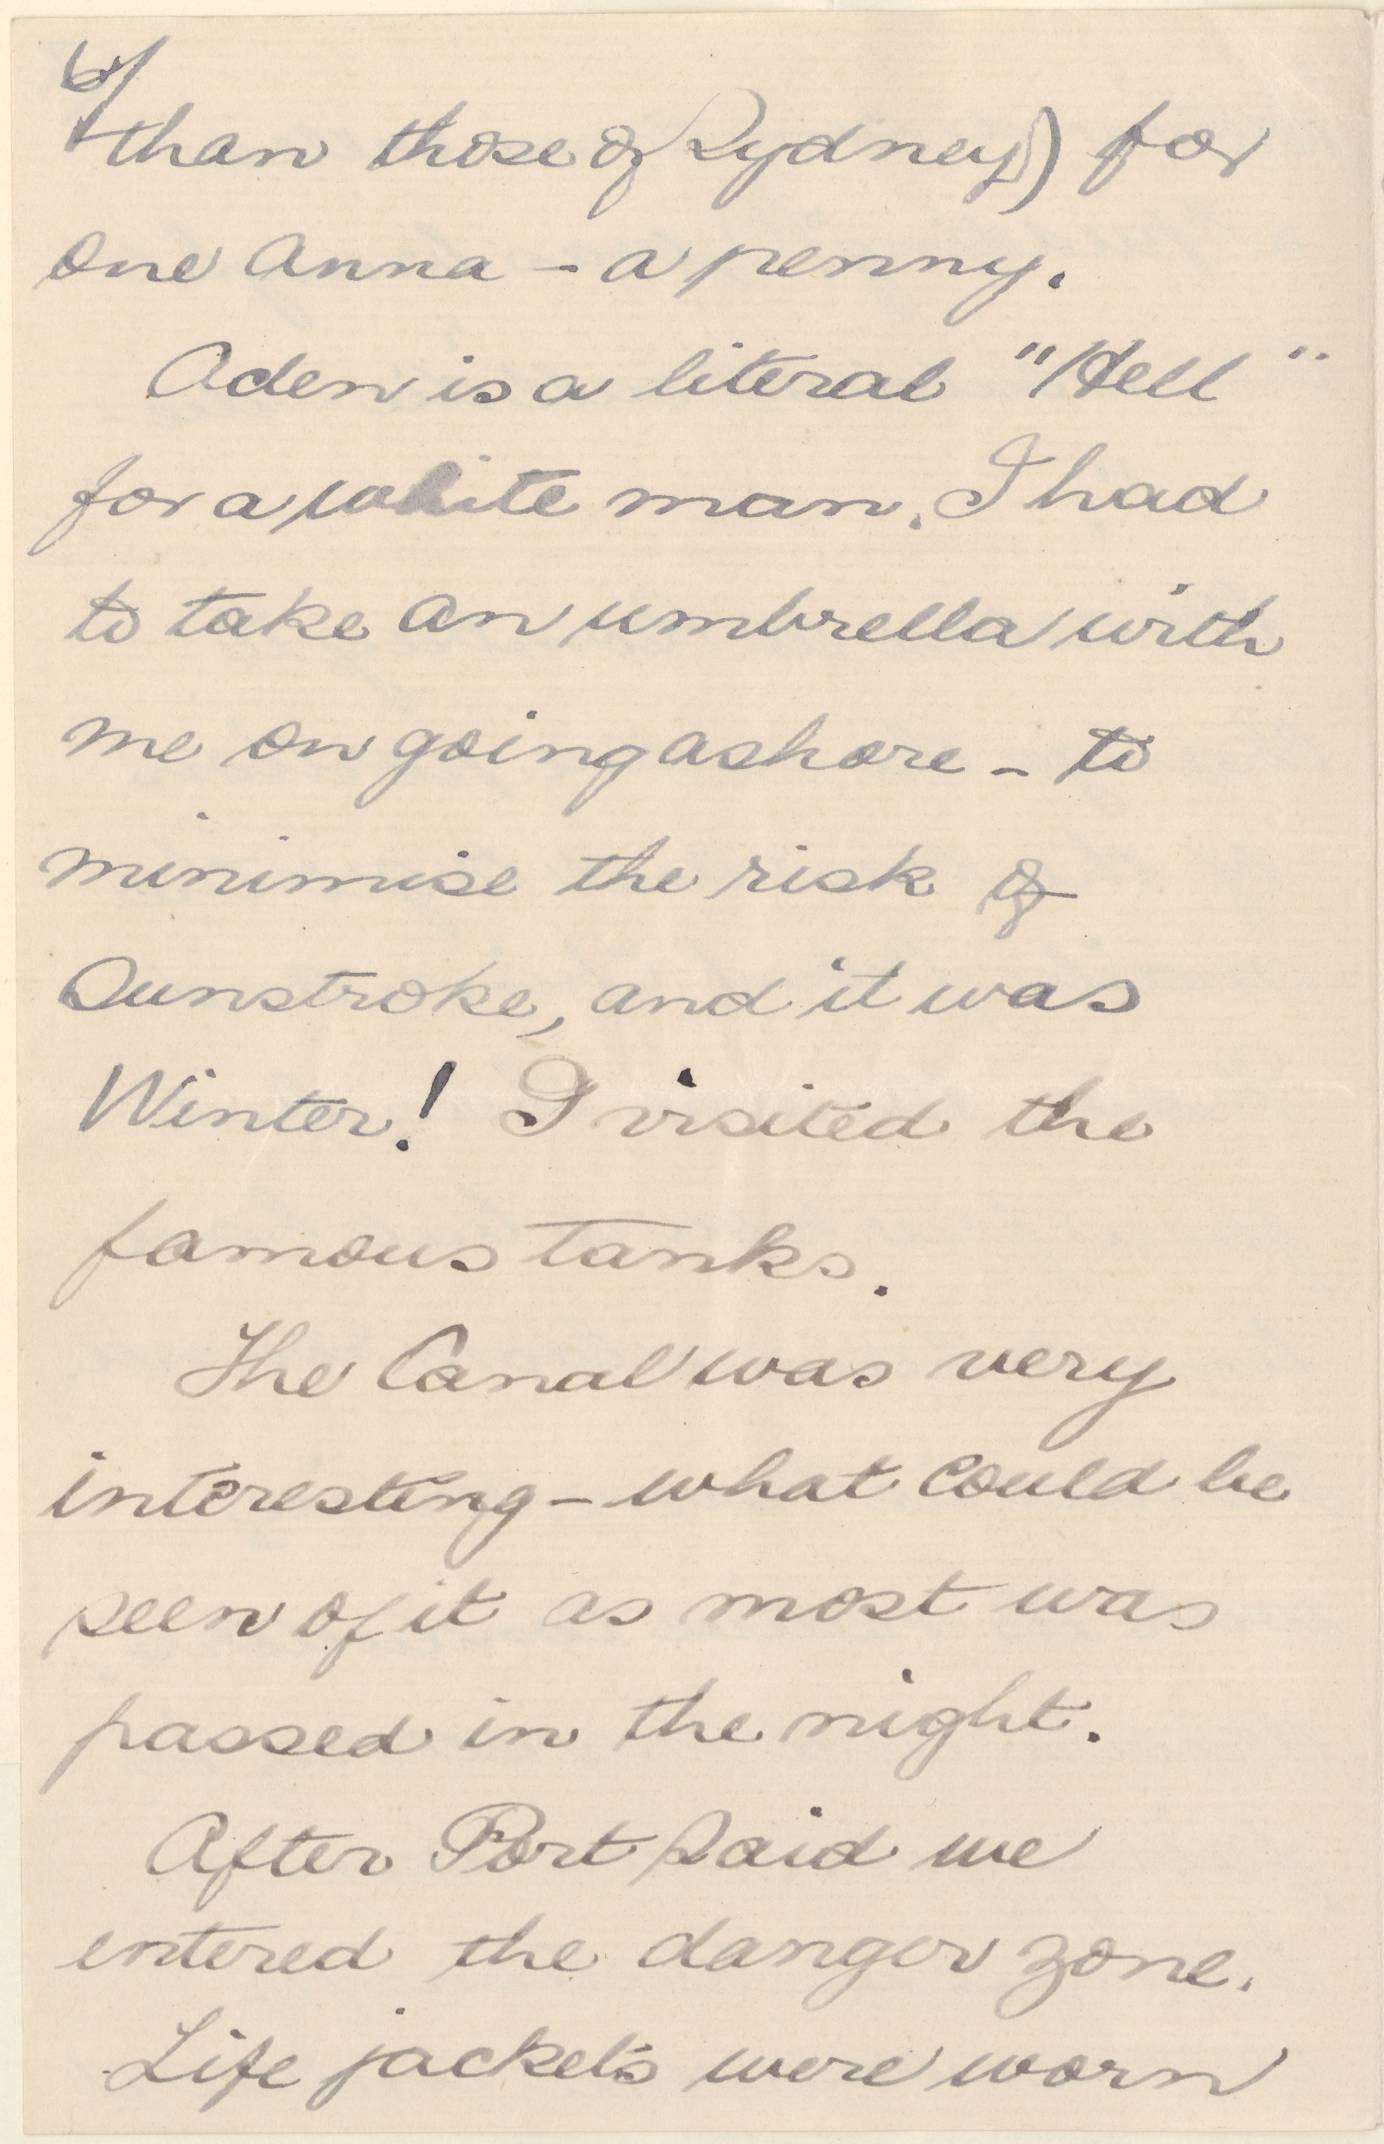 6/
than those of Sydney) for
one Anna - a penny.
Aden is a literal "Hell"
for a white man. I had
to take an umbrella with
me on going ashore - to
minimise the risk of
Sunstroke, and it was
Winter! I visited the
famous tanks.
The Canal was very
interesting - what could be
seen of it as most was
passed in the night.
After Port Said we
entered the danger zone.
Life jackets were worn